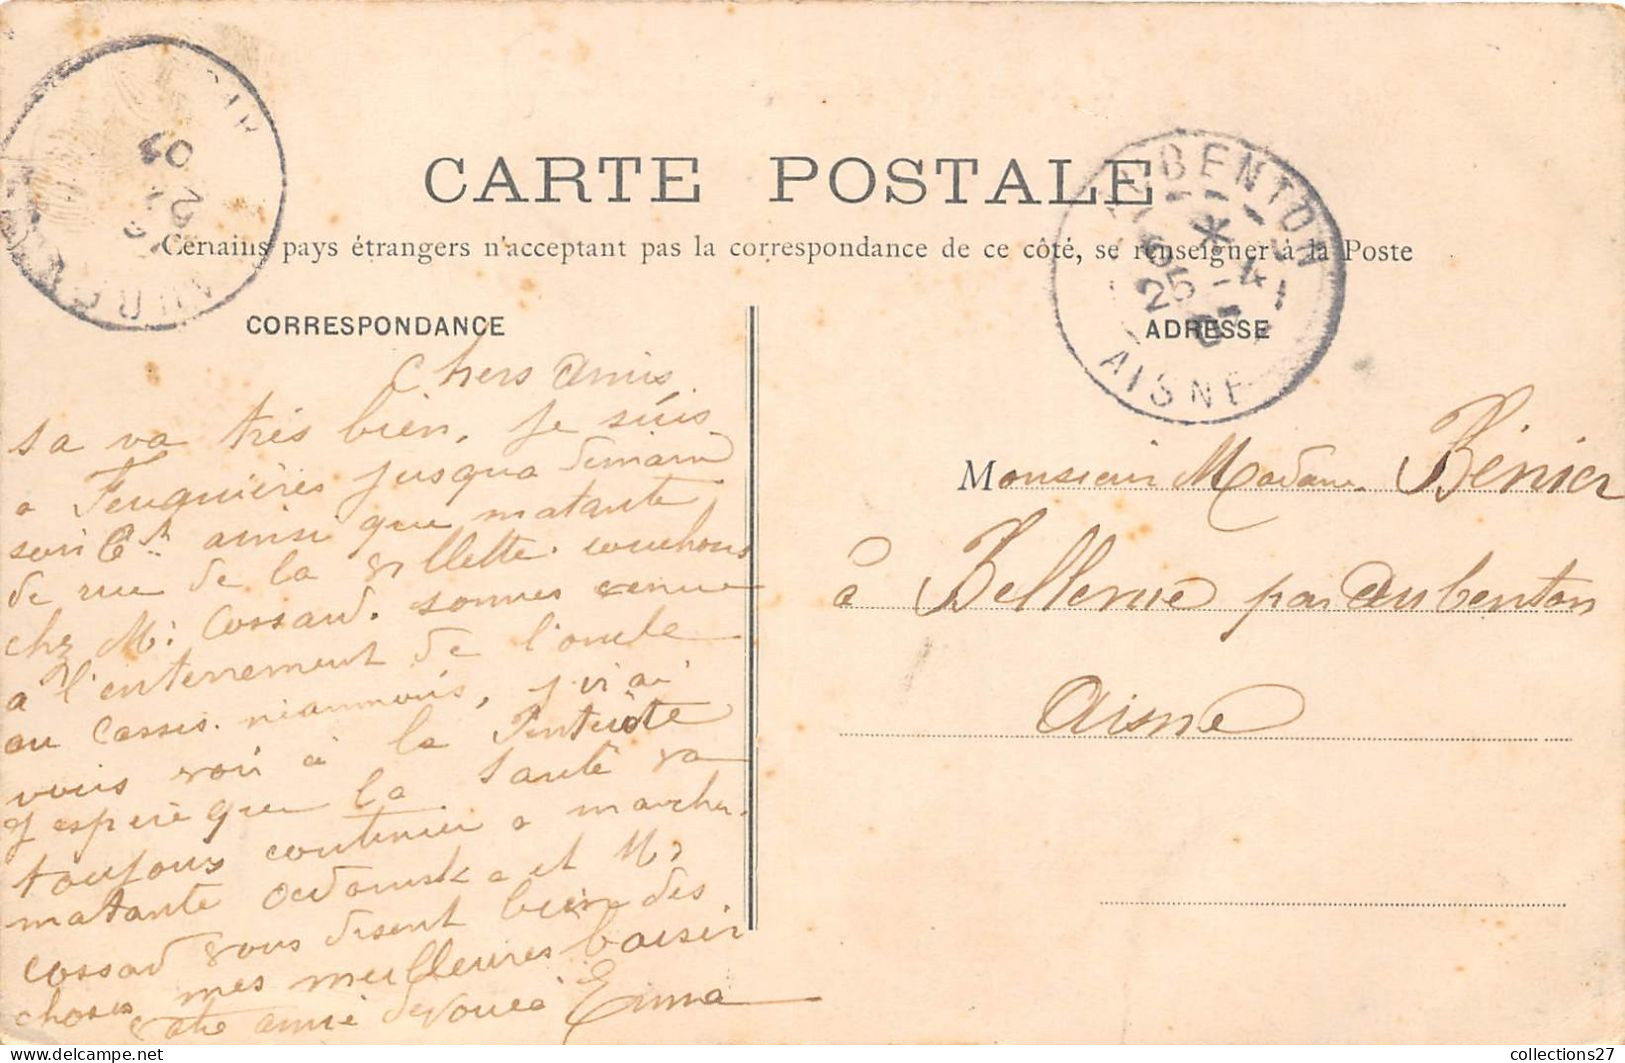 CARTE POSTALE
Certains pays étrangers n'acceptant pas la correspondance de ce côté, se renseigner à la Poste
CORRESPONDANCE
ADRESSE
AUBENTON
25 - 4
AISNE
Chers amis
sa va très bien, je suis
a Feuquières jusqua demain
soir ainsi que matante
de rue de la couchons
chz Mr Cossard. sommes venue
a l'enterrement de l'oncle
au Casses. néanmois, j irai
vous voir à la Pentcôte
j espère que la santé va
toujours continuer a marcher.
matante et Mr
Cossard vous disent bien des
choses mes meilleures baiser
votre amie devouée Emma
Monsieur Madame Bénier
à Bellevue par Aubenton
Aisne
collections27